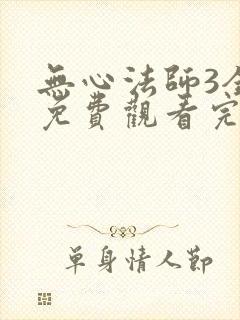 無心法師3全
免費觀看完
單身情人節